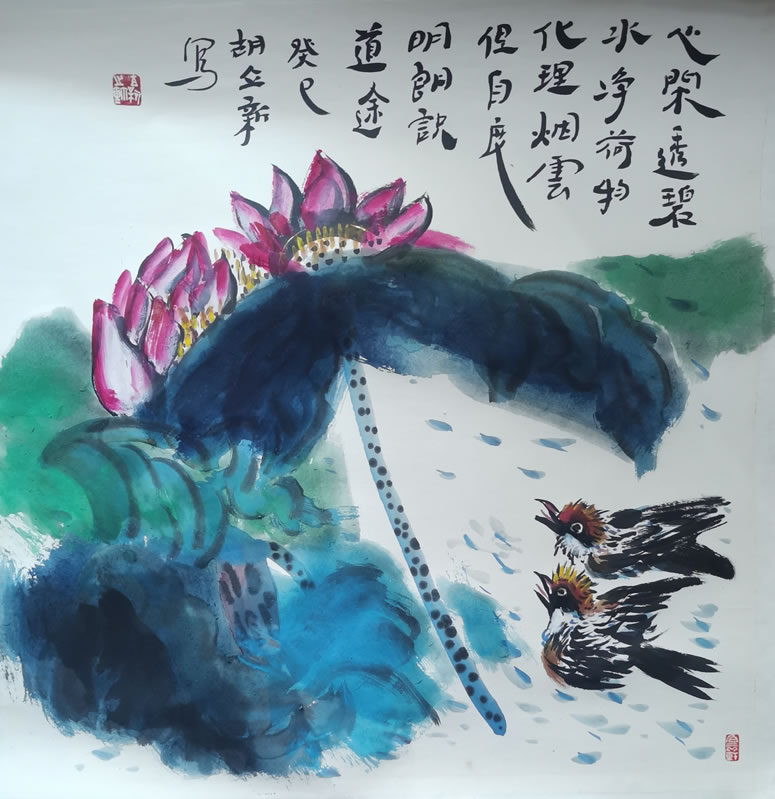 心閑透碧
水净荷物
化理烟雲
但自度
明朗訣
道途
癸巳
胡立新
寫